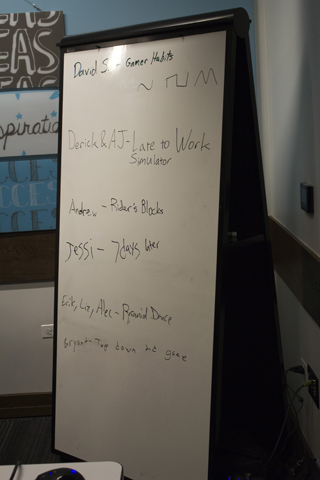 EAS
EAS
spiratio
David S - Gamer Habits
Derick & AJ - Late to Work
Simulator
Andrew - Rider's Blocks
Jessi - 7 days later
Erik, Liz, Alec - Pyramid Dance
Bryant - Top down 2d game